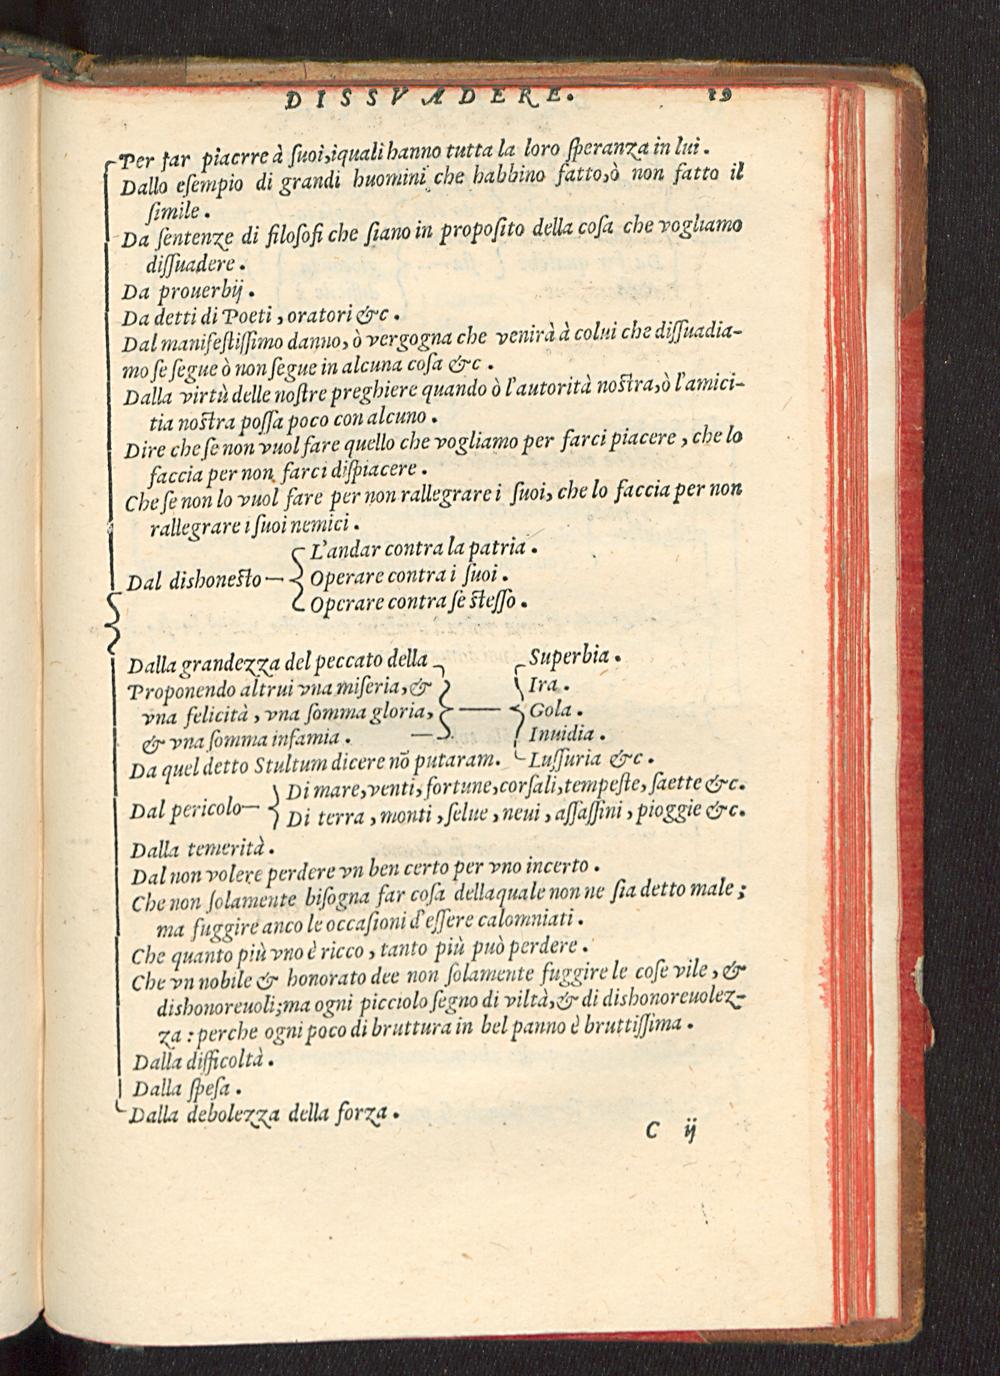 DISSVADERE. 19
Per far piacrre à ſuoi,iquali hanno tutta la loro ſperanza in lui.
Dallo eſempio di grandi huomini che habbino fatto,ò non fatto il
ſimile.
Da ſentenze di filoſofi che ſiano in propoſito della coſa che vogliamo
diſſuadere.
Da prouerbij.
Da detti di Poeti, oratori &c.
Dal manifeſtiſſimo danno, ò vergogna che venirà à colui che diſſuadia-
mo ſe ſegue ò non ſegue in alcuna coſa &c.
Dalla virtù delle noſtre preghiere quando ò l'autorità noſtra,ò l'amici-
tia noſtra poſſa poco con alcuno.
Dire che ſe non vuol fare quello che vogliamo per farci piacere, che lo
faccia per non farci diſpiacere.
Che ſe non lo vuol fare per non rallegrare i ſuoi, che lo faccia per non
rallegrare i ſuoi nemici.
L'andar contra la patria.
Dal dishoneſto — Operare contra i ſuoi.
Operare contra ſe ſteſſo.
Dalla grandezza del peccato della Superbia.
Proponendo altrui vna miſeria, & Ira.
vna felicità, vna ſomma gloria, — Gola.
& vna ſomma infamia. — Inuidia.
Da quel detto Stultum dicere nō putaram. Luſſuria &c.
Di mare,venti, fortune,corſali,tempeſte, ſaette &c.
Dal pericolo—
Di terra, monti, ſelue, neui, aſſaſſini, pioggie &c.
Dalla temerità.
Dal non volere perdere vn ben certo per vno incerto.
Che non ſolamente biſogna far coſa dellaquale non ne ſia detto male;
ma fuggire anco le occaſioni d'eſſere calomniati.
Che quanto più vno è ricco, tanto più può perdere.
Che vn nobile & honorato dee non ſolamente fuggire le coſe vile, &
dishonoreuoli;ma ogni picciolo ſegno di viltà,& di dishonoreuolez-
za: perche ogni poco di bruttura in bel panno è bruttiſſima.
Dalla difficoltà.
Dalla ſpeſa.
Dalla debolezza della forza.
C ij